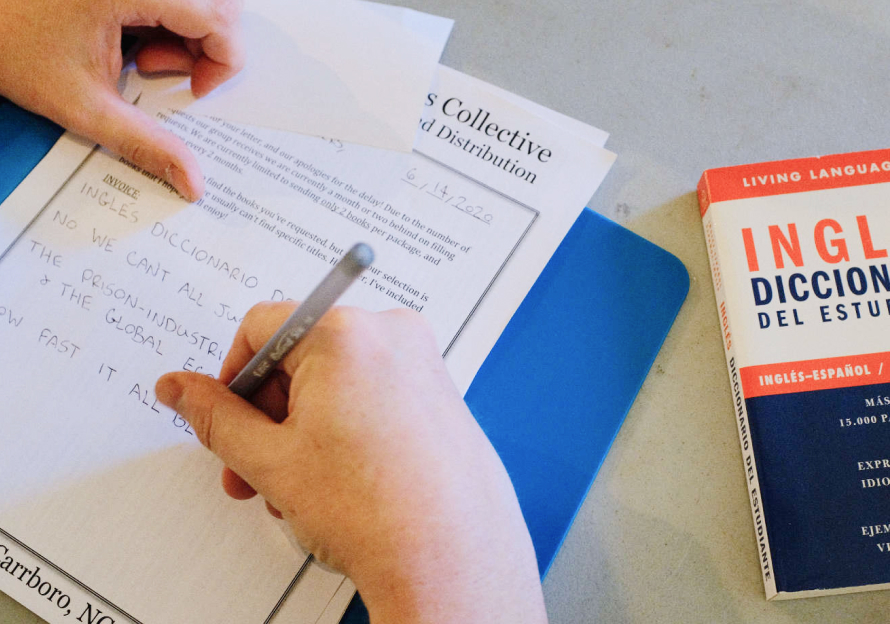 s Collective
nd Distribution
6, 14, 2020
of your letter, and our apologies for the delay! Due to the number of
requests our group receives we are currently a month or two behind on filling
requests. We are currently limited to sending only 2 books per package, and
every 2 months.
find the books you've requested, but our selection is
usually can't find specific titles. I've included
books that I hope enjoy!
INVOICE
INGLÉS DICCIONARIO DE
NO WE CANT ALL JUS
THE PRISON-INDUSTRI
& THE GLOBAL
OW FAST IT ALL
arrboro, NC
LIVING LANGUAG
INGL
DICCION
DEL ESTU
INGLÉS–ESPAÑOL /
MÁS
15.000 P
EXPR
IDIO
EJEM
INGLÉS DICCIONARIO DEL ESTUDIANTE